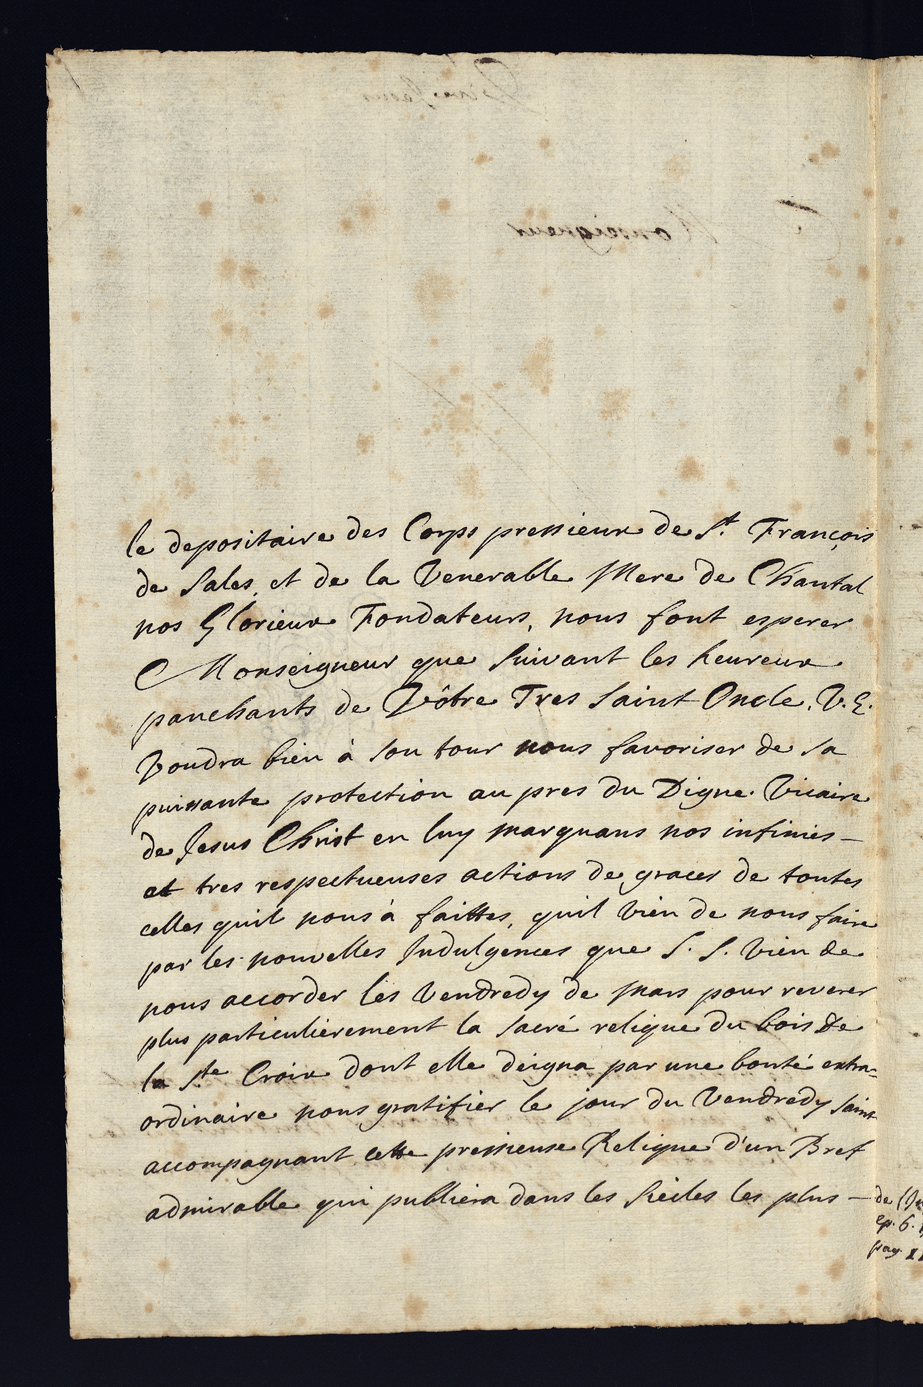 le depositaire des Corps pressieux de St. François
de Sales, et de la Venerable Mere de Chantal
nos Glorieux Fondateurs, nous font esperer
Monseigneur que suivant les heureux
panchants de Vôtre Tres Saint Oncle, V. E.
Voudra bien à son tour nous favoriser de sa
puissante protection au pres du Digne Vicaire
de Jesus Christ en luy marquans nos infinies –
et tres respectueuses actions de graces de toutes
celles quil nous à faittes, quil vien de nous faire
par les nouvelles Indulgences que S. S. vien de
nous accorder les Vendredy de Mars pour reverer
plus particulierement la sacré relique du bois de
la Ste Croix dont elle deigna par une bonté extra=
ordinaire nous gratifier le jour du Vendredy saint
accompagnant cette pressieuse Relique d'un Bref
admirable qui publiera dans les siecles les plus –
de
ep. 6.
pag.
Monseigneur